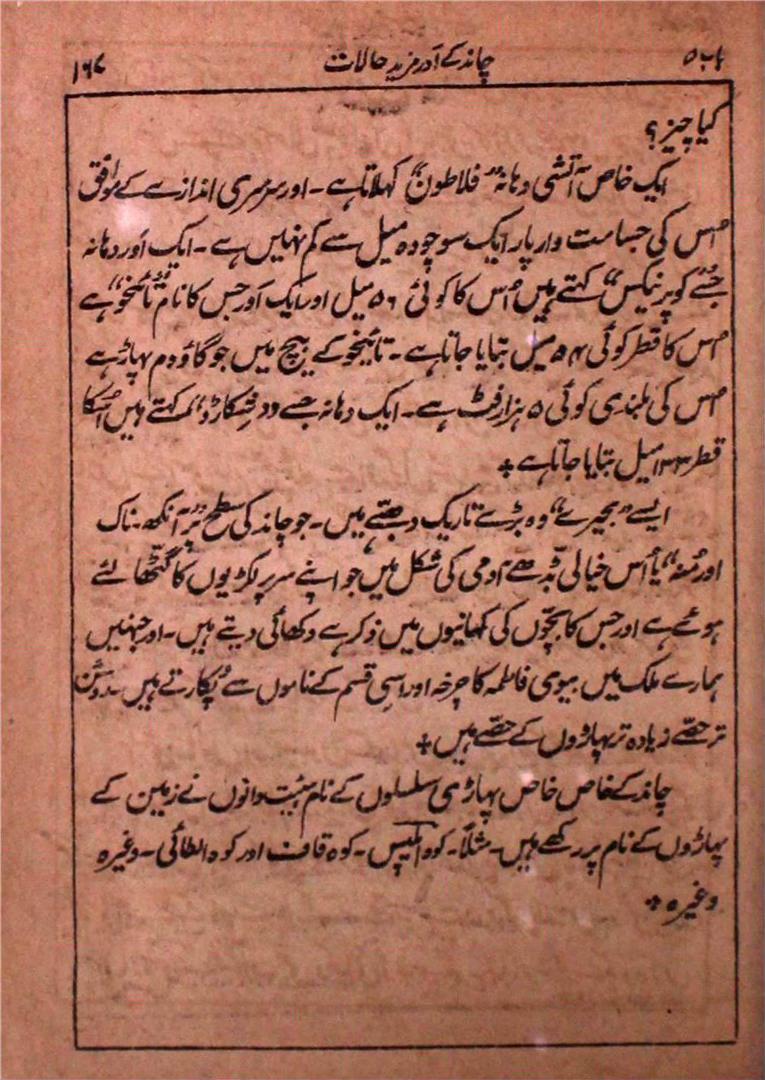 باب ۵ چاند کے اور مزید حالات ۱۶۷
کیا چیز؟
ایک خاص آتشی دہانہ "فلاطون" کہلاتا ہے۔ اور سرسری اندازے کے موافق
اُس کی جسامت وارپار ایک سو چودہ میل سے کم نہیں ہے۔ ایک اور دہانہ
جسے "کوپرنیکس" کہتے ہیں اُس کا کوئی ۵۶ میل اور ایک اور جس کا نام "تائیخو" ہے
اُس کا قطر کوئی ۵۴ میل بتایا جاتا ہے۔ تائیخو کے بیچ میں جو گاؤدم پہاڑ ہے
اُس کی بلندی کوئی ۵ ہزار فٹ ہے۔ ایک دہانہ جسے کہتے ہیں اُسکا
قطر ۱۳۴ میل بتایا جاتا ہے +
ایسے "بحیرے" وہ بڑے تاریک دھبّے ہیں۔ جو چاند کی سطح پر "آنکھ۔ ناک
اور مُنہ" یا اُس خیالی بڈھے آدمی کی شکل میں جو اپنے سر پر لکڑیوں کا گٹّھا لئے
ہوئے ہے اور جس کا بچّوں کی کہانیوں میں ذکر ہے دکھائی دیتے ہیں۔ اور جنہیں
ہمارے ملک میں بیوی فاطمہ کا چرخہ اور اسی قسم کے ناموں سے پُکارتے ہیں۔ روشن
تر حصّے زیادہ تر پہاڑوں کے حصّے ہیں +
چاند کے خاص خاص پہاڑی سلسلوں کے نام ہیئت دانوں نے زمین کے
پہاڑوں کے نام پر رکھے ہیں۔ مثلاً۔ کوہ الپس۔ کوہ قاف اور کوہ الطائی۔ وغیرہ
وغیرہ +